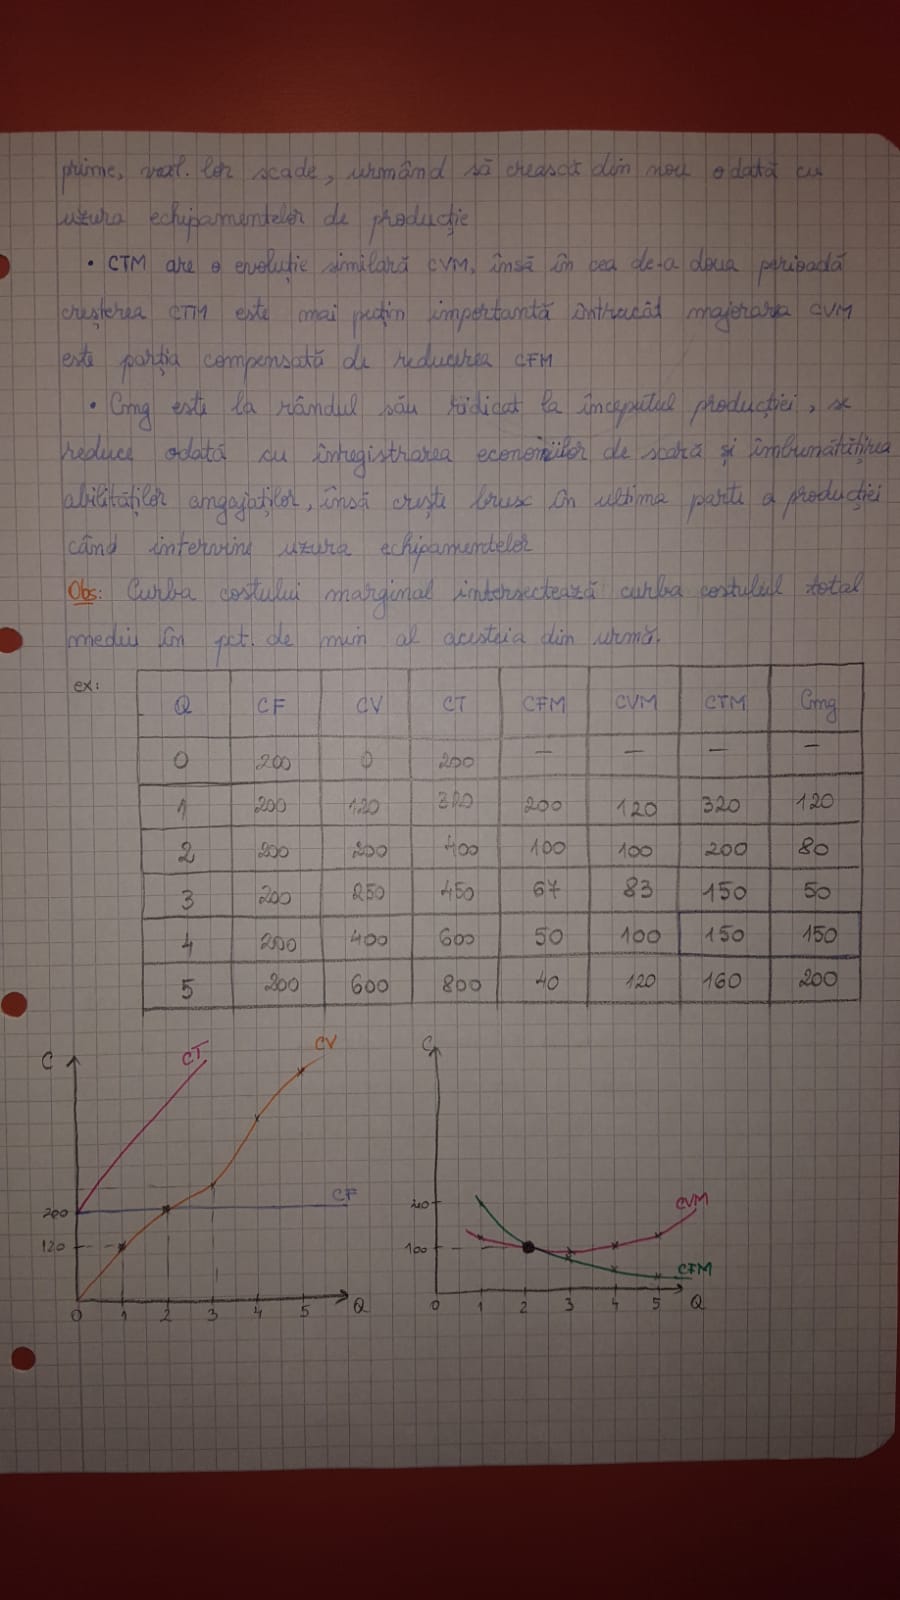 prime, mat. lor scade, urmând să crească din nou odată cu
uzura echipamentelor de producție
• CTM are o evoluție similară CVM, însă în cea de-a doua perioadă
creșterea CTM este mai puțin importantă întrucât majorarea CVM
este parția compensată de reducerea CFM
• Cmg este la rândul său ridicat la începutul producției, se
reduce odată cu înregistrarea economiilor de scară și îmbunătățirea
abilităților angajaților, însă crește brusc în ultima parte a producției
când intervine uzura echipamentelor
Obs: Curba costului marginal intersectează curba costului total
mediu în pct. de min al acesteia din urmă.
ex:
Q CF CV CT CFM CVM CTM Cmg
0 200 0 200 – – – –
1 200 120 320 200 120 320 120
2 200 200 400 100 100 200 80
3 200 250 450 67 83 150 50
4 200 400 600 50 100 150 150
5 200 600 800 40 120 160 200
C
CT
CV
200
CF
120
0 1 2 3 4 5 Q
C
200
CVM
100
CFM
0 1 2 3 4 5 Q